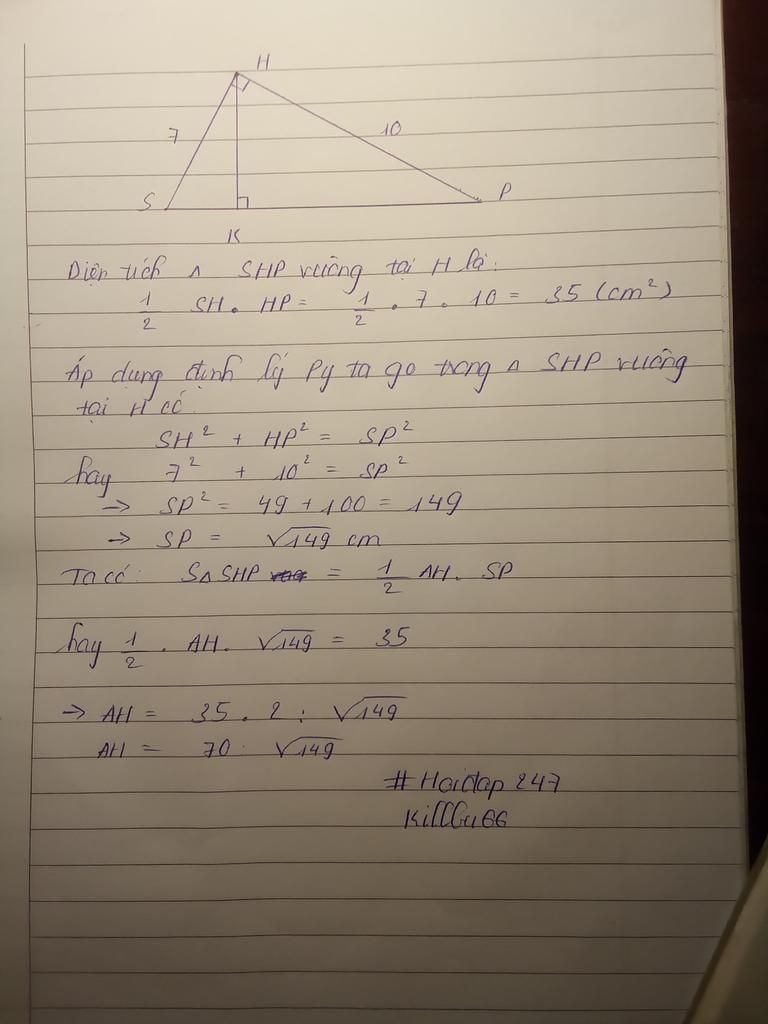 H
7
10
S
P
K
Diện tích △ SHP vuông tại H là:
1/2 SH. HP = 1/2 . 7 . 10 = 35 (cm²)
Áp dụng định lý Py ta go trong △ SHP vuông
tại H có
SH² + HP² = SP²
hay 7² + 10² = SP²
→ SP² = 49 + 100 = 149
→ SP = √149 cm
Ta có: S△SHP = 1/2 AH. SP
hay 1/2 . AH. √149 = 35
→ AH = 35 . 2 : √149
AH = 70 : √149
#Hoidap247